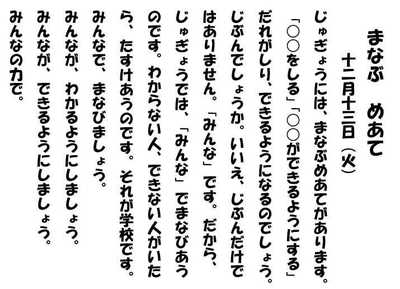 まなぶ　めあて
十二月十三日（火）
じゅぎょうには、まなぶめあてがあります。
「○○をしる」「○○ができるようにする」
だれがしり、できるようになるのでしょう。
じぶんでしょうか。いいえ、じぶんだけで
はありません。「みんな」です。だから、
じゅぎょうでは、「みんな」でまなびあう
のです。わからない人、できない人がいた
ら、たすけあうのです。それが学校です。
みんなで、まなびましょう。
みんなが、わかるようにしましょう。
みんなが、できるようにしましょう。
みんなの力で。